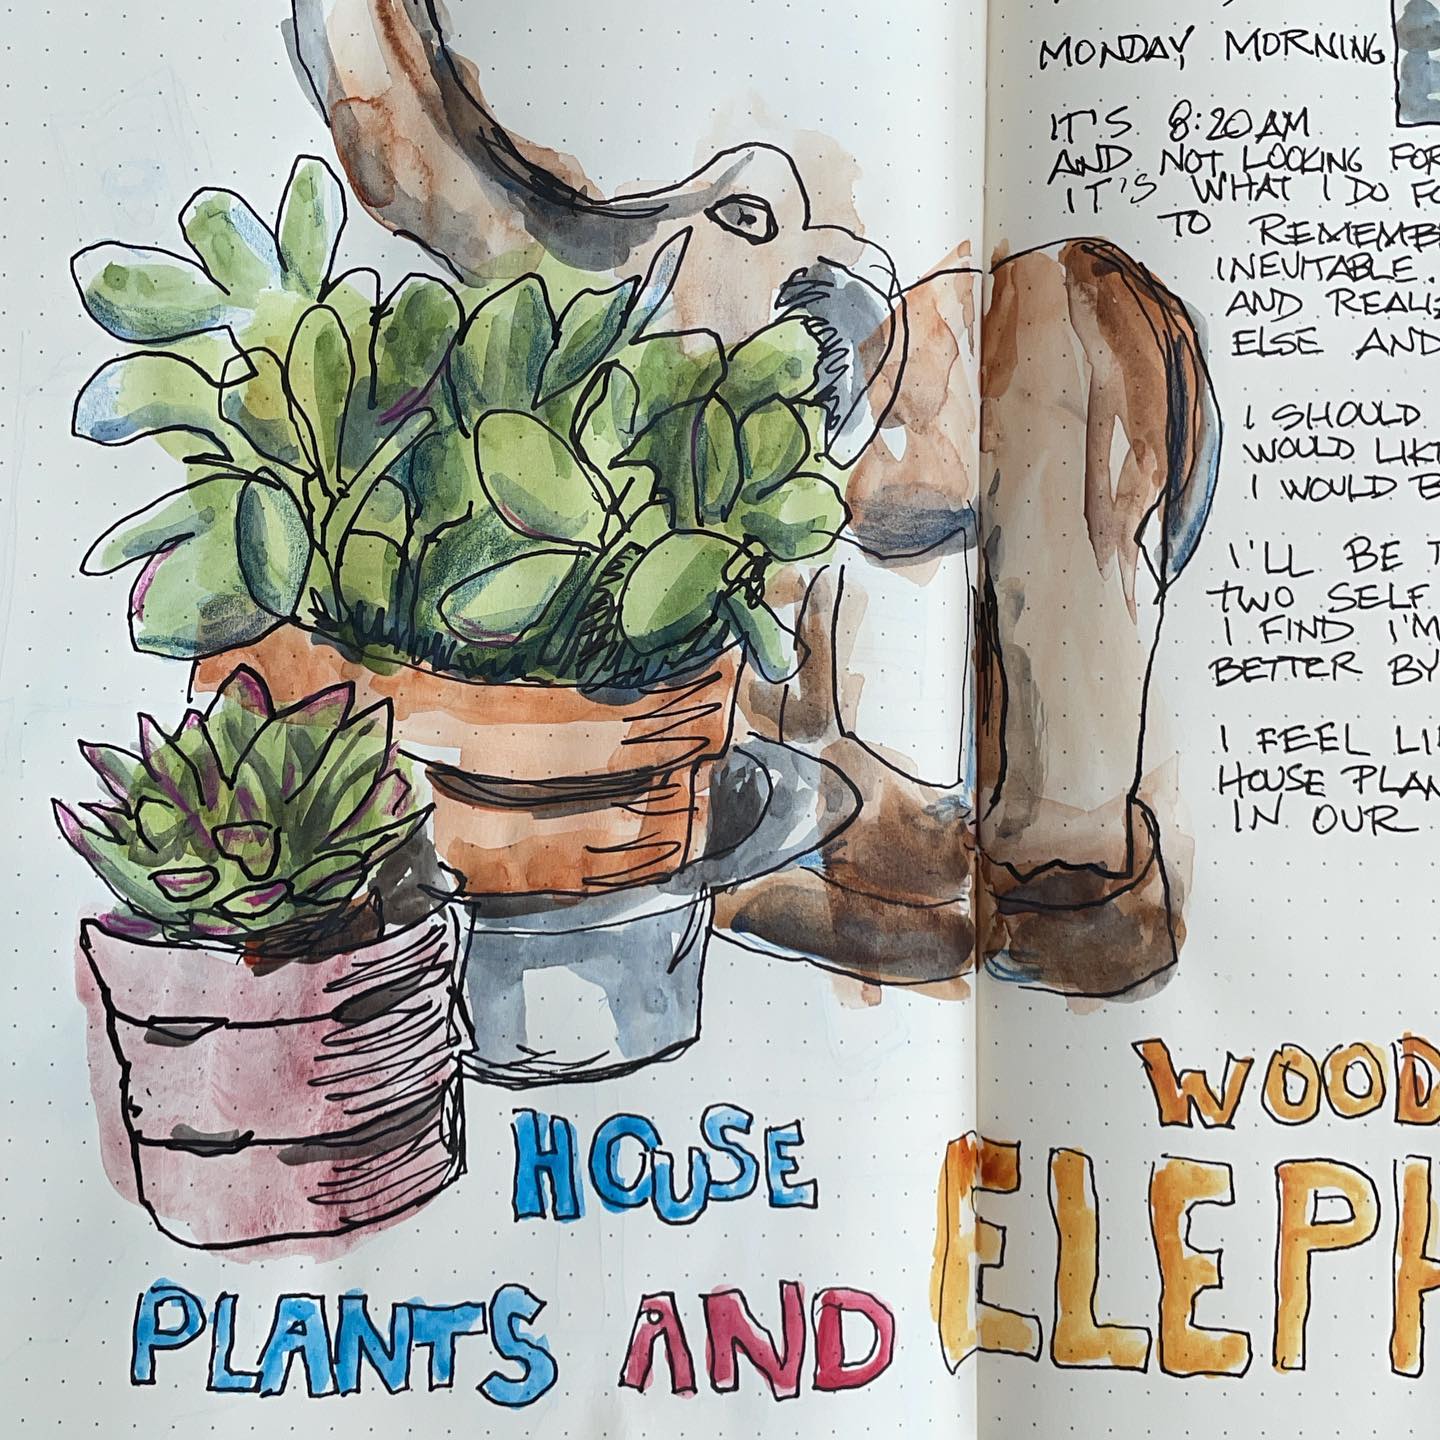 MONDAY MORNING
IT'S 8:20AM
AND NOT LOOKING FOR
IT'S WHAT I DO
TO
INEVITABLE.
AND
ELSE AND
I SHOULD
WOULD
I WOULD
I'LL BE
TWO SELF
I FIND I'M
BETTER BY
I FEEL
HOUSE
IN OUR
HOUSE
PLANTS AND